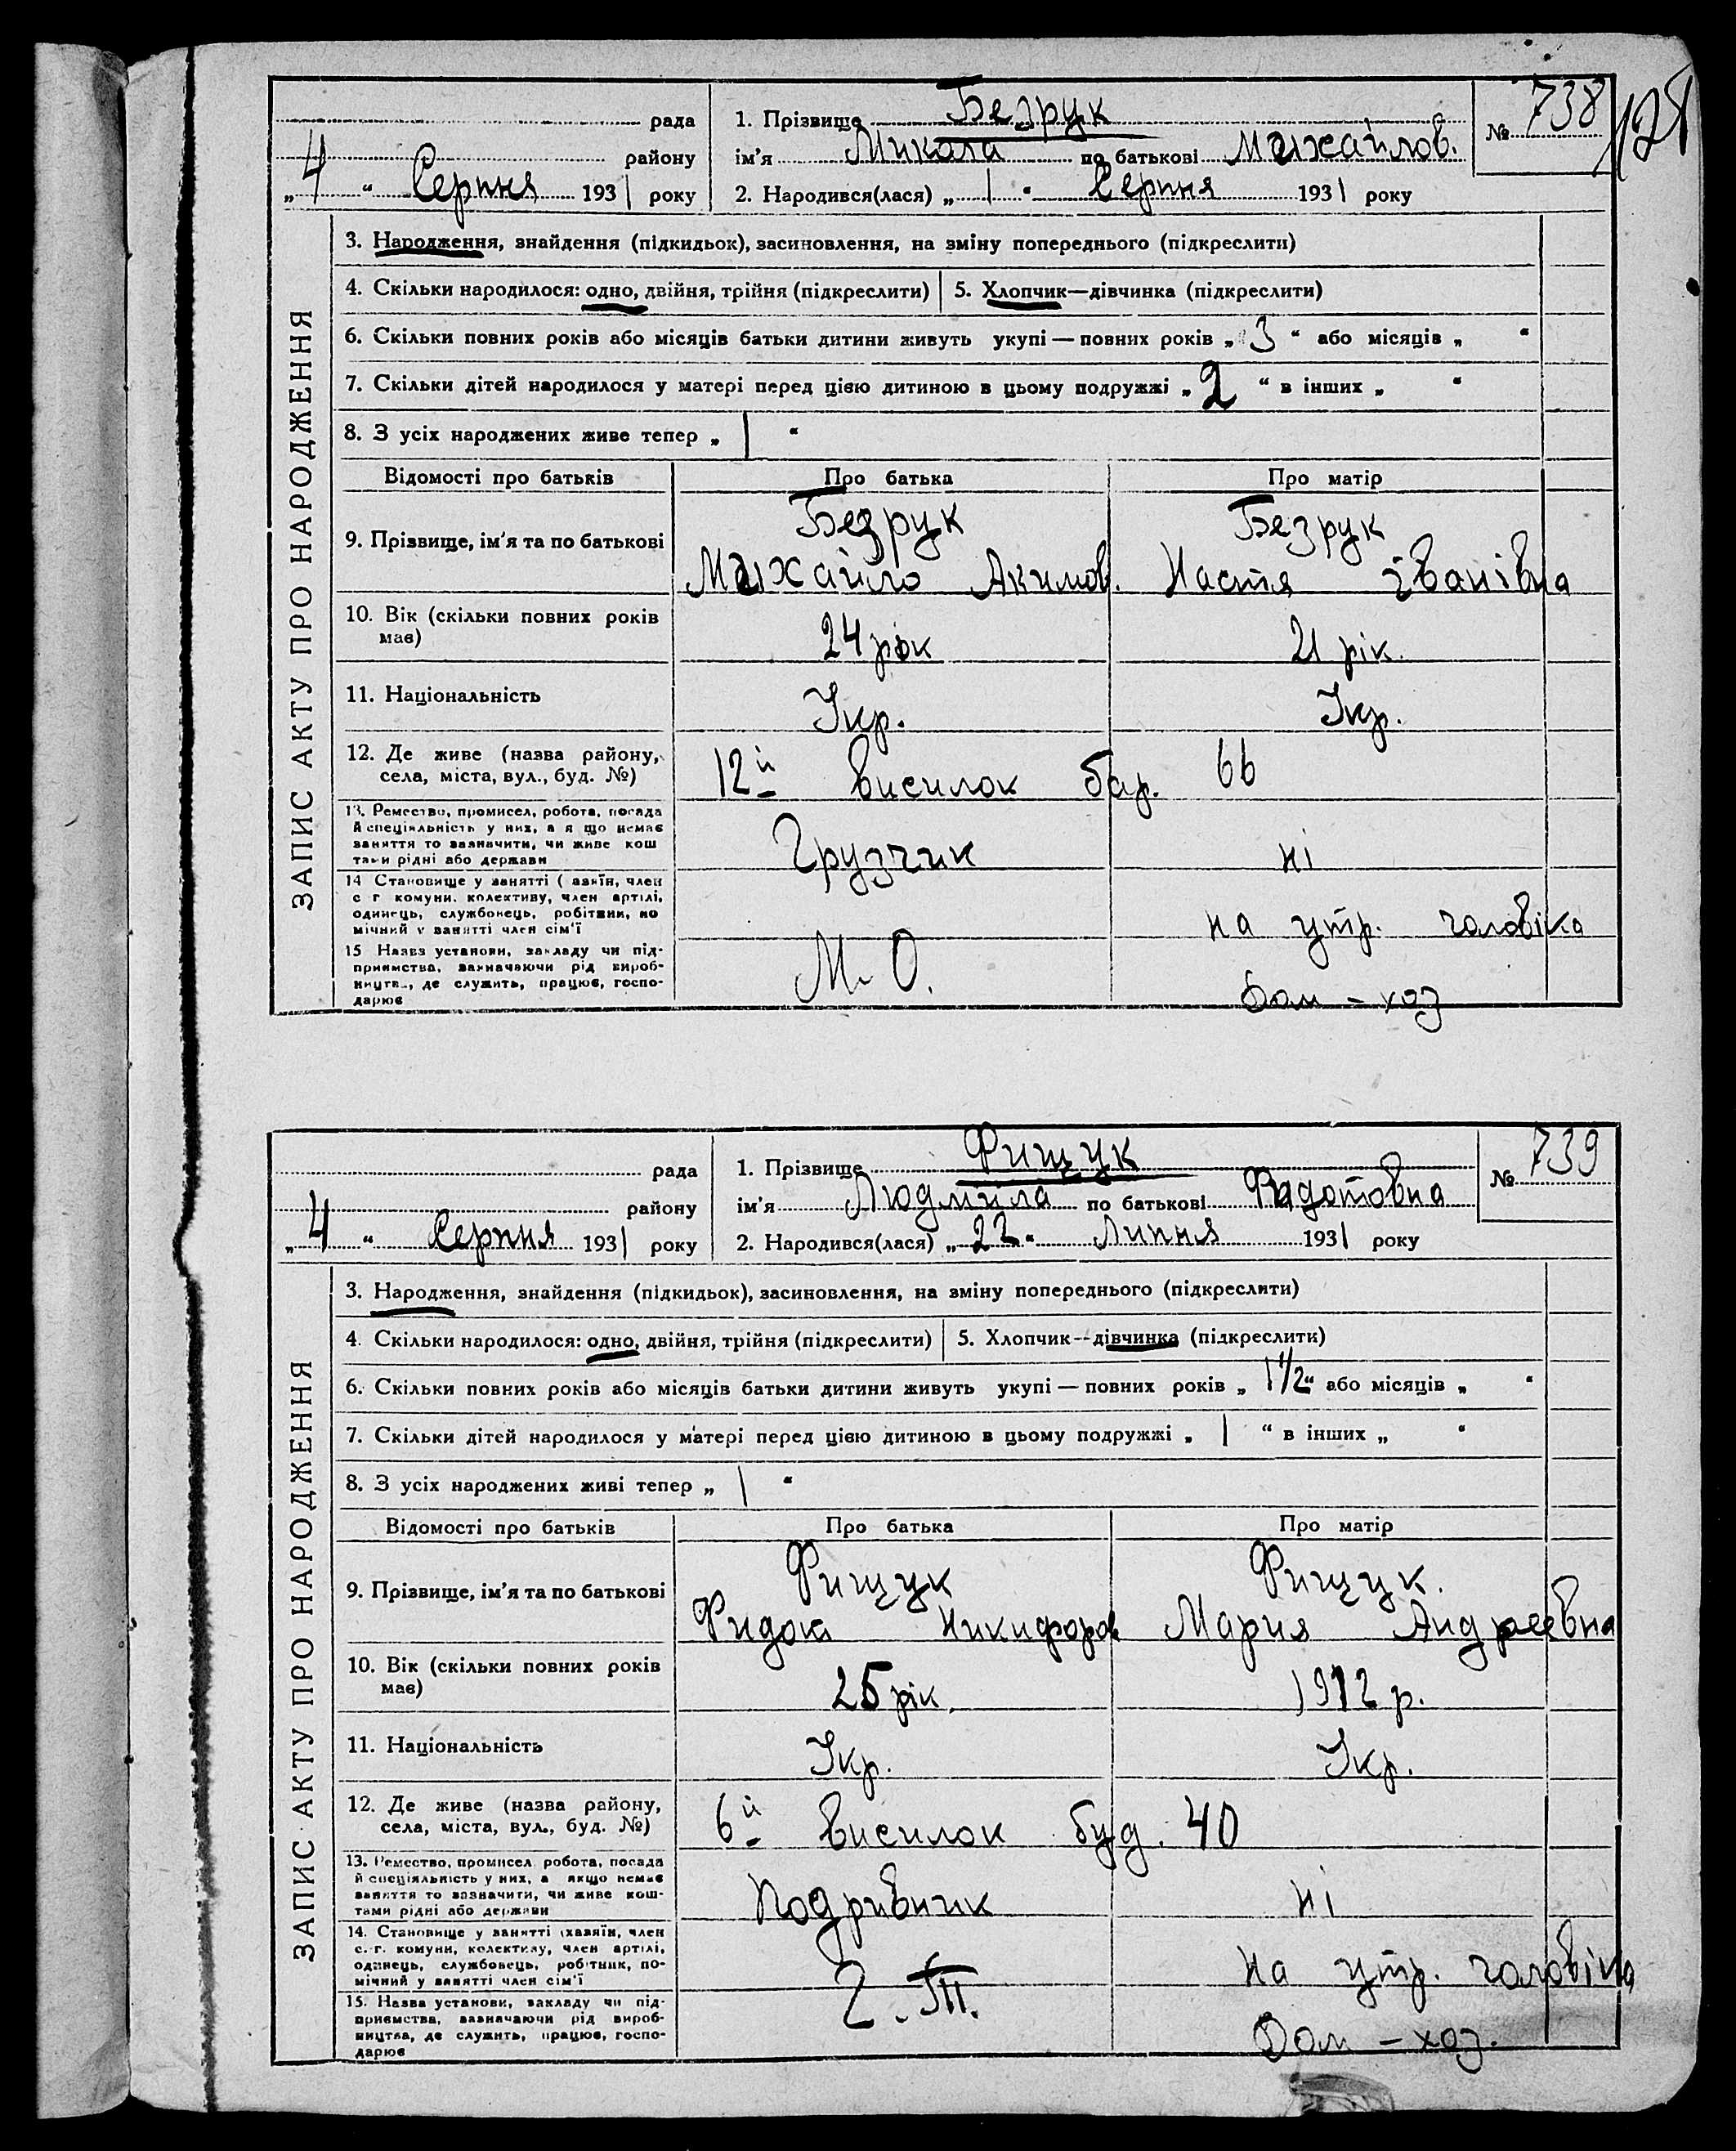 738
128
рада 1. Прізвище Безрук №
району ім'я Микола по батькові Михайлов.
„ 4 “ Серпня 1931 року 2. Народився(лася) „ 1 “ Серпня 1931 року
ЗАПИС АКТУ ПРО НАРОДЖЕННЯ
3. Народження, знайдення (підкидьок), засиновлення, на зміну попереднього (підкреслити)
4. Скільки народилося: одно, двійня, трійня (підкреслити) 5. Хлопчик—дівчинка (підкреслити)
6. Скільки повних років або місяців батьки дитини живуть укупі — повних років „ 3 “ або місяців „ “
7. Скільки дітей народилося у матері перед цією дитиною в цьому подружжі „ 2 “ в інших „ “
8. З усіх народжених живе тепер „ 1 “
Відомості про батьків Про батька Про матір
Безрук Безрук
9. Прізвище, ім'я та по батькові
Михайло Акимов. Настя Іванівна
10. Вік (скільки повних років
має) 24 рік 21 рік.
11. Національність Укр. Укр.
12. Де живе (назва району,
села, міста, вул., буд. №) 12й висилок бар. 66
13. Ремество, промисел, робота, посада
й спеціяльність у них, а я що немає
заняття то зазначити, чи живе кош
тами рідні або держави Грузчик ні
14 Становище у занятті ( азяїн, член
с г комуни. колективу, член артілі,
одинець, службовець, робітник, по
мічний у занятті член сім'ї на утр. чоловіка
15 Назва установи, закладу чи під-
приємства, зазначаючи рід вироб-
ництв., де служить, працює, госпо-
дарює М. О. Дом – хоз
739
рада 1. Прізвище Фищук №
району ім'я Людмила по батькові Фадотовна
„ 4 “ Серпня 1931 року 2. Народився(лася) „ 22 “ Липня 1931 року
ЗАПИС АКТУ ПРО НАРОДЖЕННЯ
3. Народження, знайдення (підкидьок), засиновлення, на зміну попереднього (підкреслити)
4. Скільки народилося: одно, двійня, трійня (підкреслити) 5. Хлопчик—дівчинка (підкреслити)
6. Скільки повних років або місяців батьки дитини живуть укупі — повних років „ 1 1/2 “ або місяців „ “
7. Скільки дітей народилося у матері перед цією дитиною в цьому подружжі „ 1 “ в інших „ “
8. З усіх народжених живі тепер „ 1 “
Відомості про батьків Про батька Про матір
Фищук Фищук.
9. Прізвище, ім'я та по батькові
Фидот Никифоров Мария Андреевна
10. Вік (скільки повних років
має) 25 рік 1912 р.
11. Національність Укр. Укр.
12. Де живе (назва району,
села, міста, вул., буд. №) 6й висилок буд. 40
13. Ремество, промисел робота, посада
й спеціяльність у них, а якщо немає
заняття то зазначити, чи живе кош-
тами рідні або держави Подривник ні
14. Становище у занятті (хазяїн, член
с.-г. комуни, колективу, член артілі,
одинець, службовець, робітник, по-
мічний у занятті член сім'ї на утр. чоловіка
15. Назва установи, закладу чи під-
приємства, зазначаючи рід вироб-
ництва, де служить, працює, госпо-
дарює Дом – хоз.